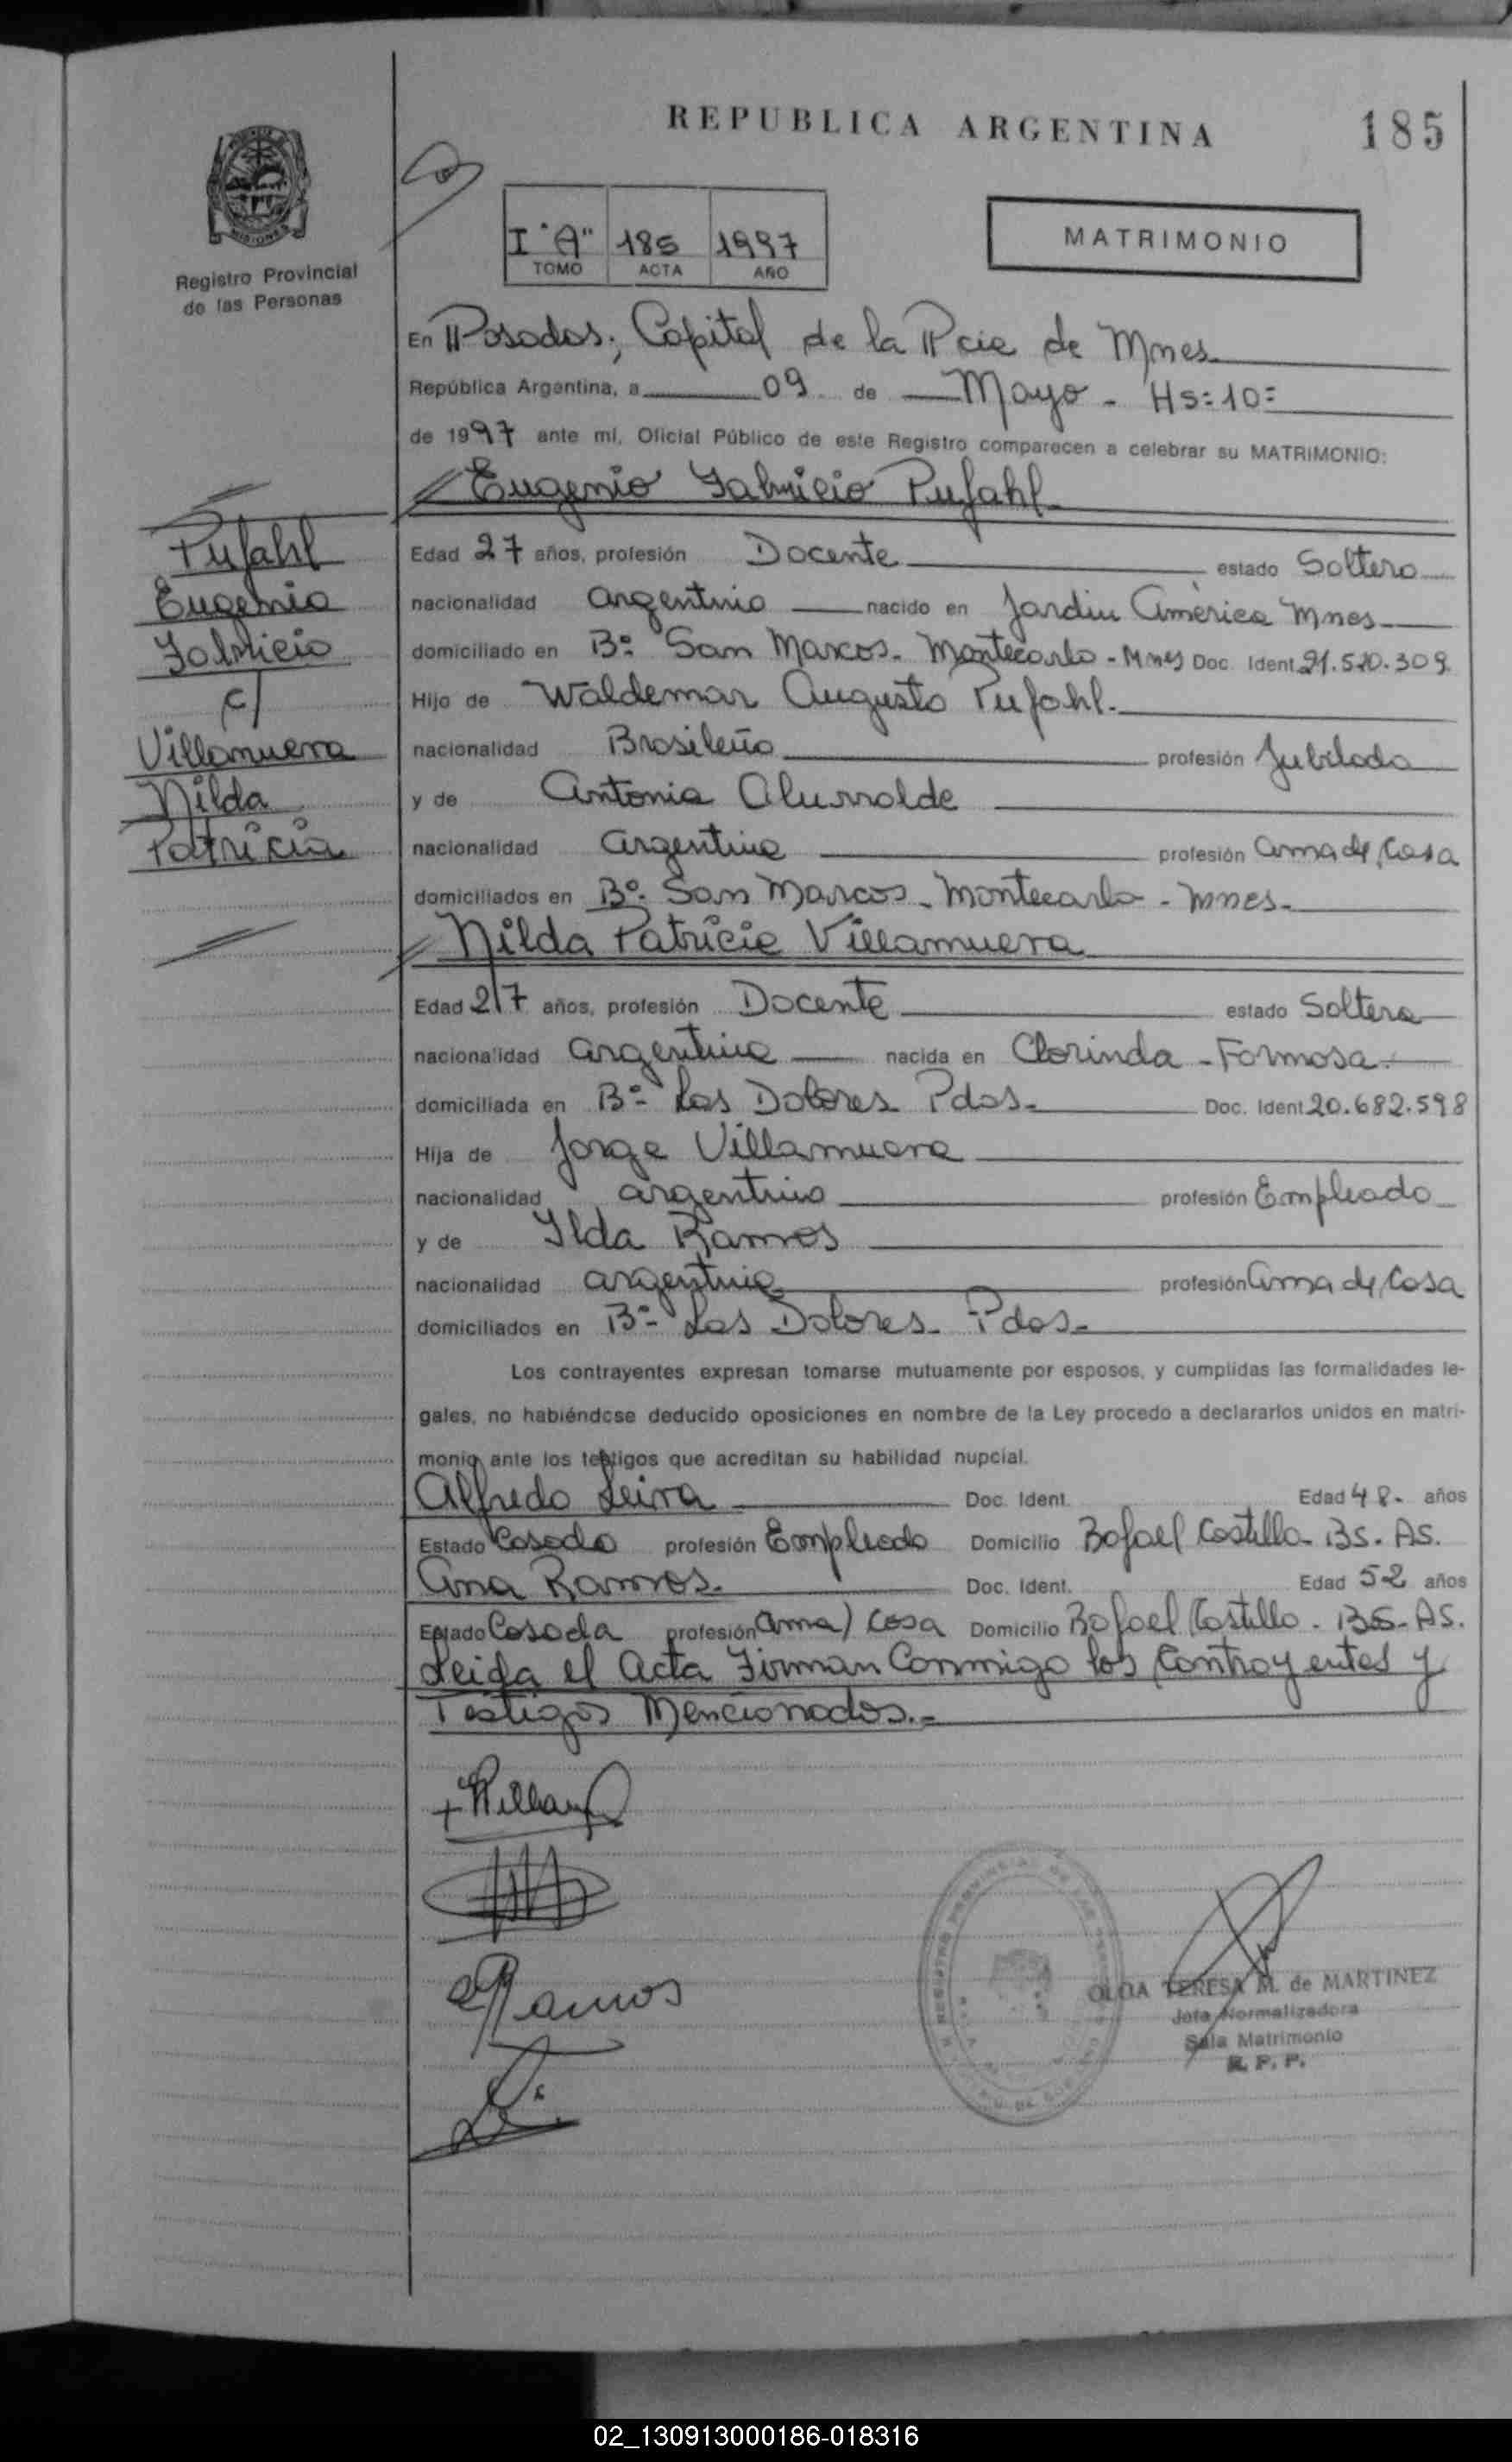 REPUBLICA ARGENTINA
185
Registro Provincial
de las Personas
I "A" 185 1997
TOMO ACTA AÑO
MATRIMONIO
En Posadas; Capital de la Pcia de Mnes
República Argentina, a 09 de Mayo - Hs: 10:
de 1997 ante mi, Oficial Público de este Registro comparecen a celebrar su MATRIMONIO:
Eugenio Fabricio Pufahl
Pufahl
Eugenio
Fabricio
c/
Villanueva
Nilda
Patricia
Edad 27 años, profesión Docente estado Soltero
nacionalidad argentino nacido en Jardin América Mnes
domiciliado en Bº San Marcos - Montecarlo - Mnes Doc. Ident 21.520.309
Hijo de Waldemar Augusto Pufahl.
nacionalidad Brasileño profesión Jubilado
y de Antonia Alurralde
nacionalidad argentina profesión ama de Casa
domiciliados en Bº San Marcos - Montecarlo - Mnes -
Nilda Patricia Villanueva
Edad 27 años, profesión Docente estado Soltera
nacionalidad argentina nacida en Clorinda - Formosa -
domiciliada en Bº Los Dolores Pdas - Doc. Ident 20.682.598
Hija de Jorge Villanueva
nacionalidad argentino profesión Empleado
y de Ilda Ramos
nacionalidad argentina profesión ama de Casa
domiciliados en Bº Los Dolores - Pdas -
Los contrayentes expresan tomarse mutuamente por esposos, y cumplidas las formalidades le-
gales, no habiéndose deducido oposiciones en nombre de la Ley procedo a declararlos unidos en matri-
monio ante los testigos que acreditan su habilidad nupcial.
Alfredo Leiva Doc. Ident. Edad 48 - años
Estado Casado profesión Empleado Domicilio Rafael Castillo - BS. AS.
Ana Ramos. Doc. Ident. Edad 52 años
Estado Casada profesión ama / casa Domicilio Rafael Castillo - BS - AS.
Leida el Acta Firman Conmigo los Contrayentes y
Testigos Mencionados. -
Ramos
OLGA TERESA M. de MARTINEZ
Jefa Normalizadora
Sala Matrimonio
R. P. P.
02_130913000186-018316